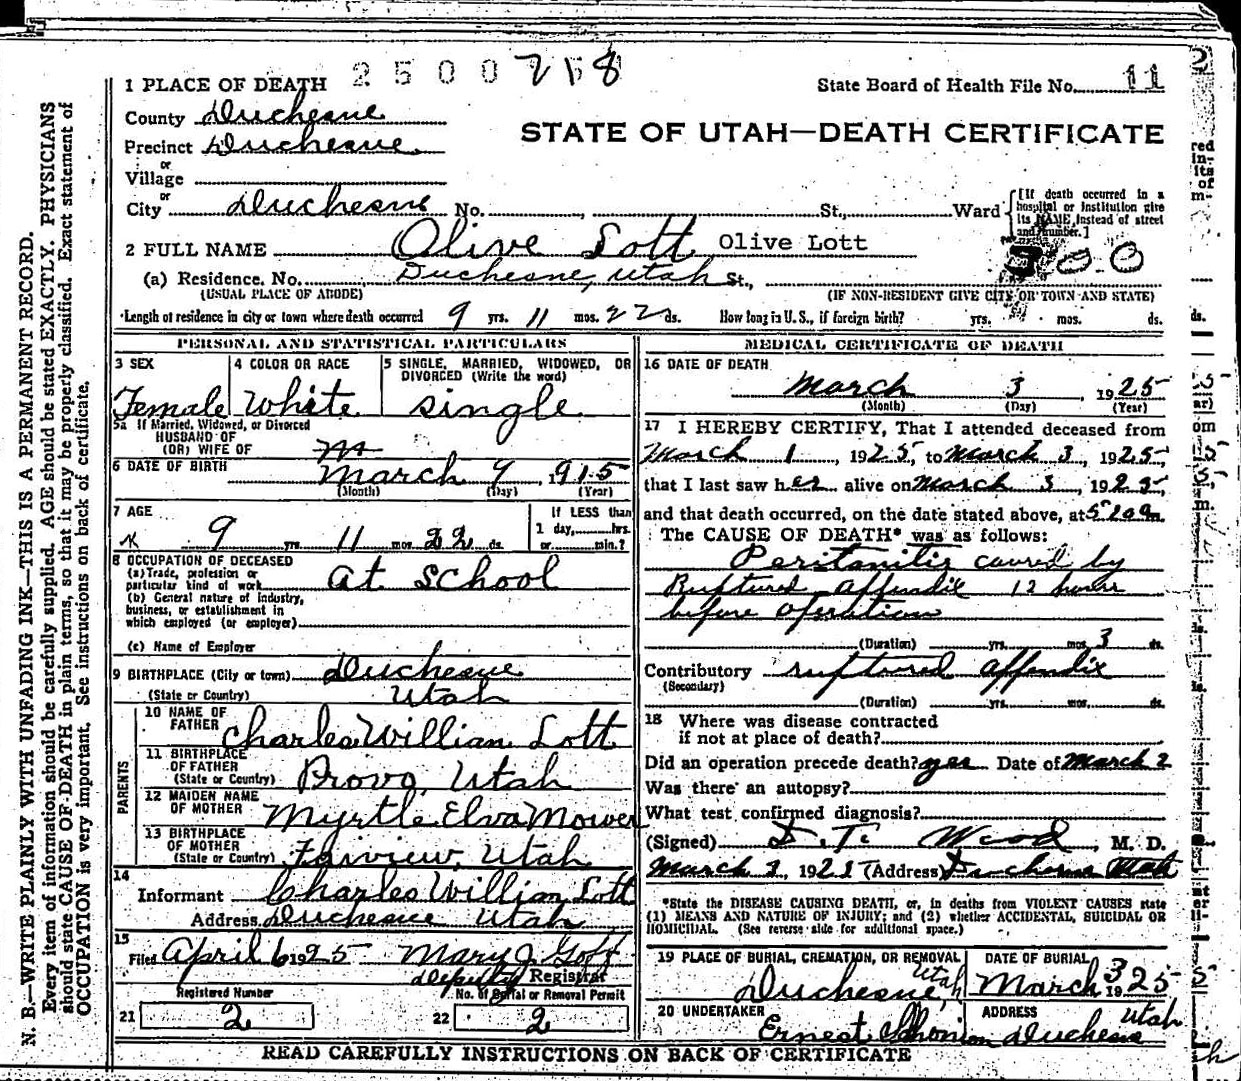 2500718
1 PLACE OF DEATH
State Board of Health File No. 11
County Duchesne
STATE OF UTAH—DEATH CERTIFICATE
Precinct Duchesne
or
Village
or
City Duchesne No. , St., Ward
[If death occurred in a hospital or institution give its NAME instead of street and number.]
2 FULL NAME Olive Lott Olive Lott
300
(a) Residence. No. Duchesne, Utah St.,
(USUAL PLACE OF ABODE) (IF NON-RESIDENT GIVE CITY OR TOWN AND STATE)
Length of residence in city or town where death occurred 9 yrs. 11 mos. 22 ds. How long in U.S., if foreign birth? yrs. mos. ds.
PERSONAL AND STATISTICAL PARTICULARS
3 SEX
Female
4 COLOR OR RACE
White
5 SINGLE, MARRIED, WIDOWED, OR
DIVORCED (Write the word)
Single
5a If Married, Widowed, or Divorced
HUSBAND OF
(OR) WIFE OF
6 DATE OF BIRTH March 9, 1915
(Month) (Day) (Year)
7 AGE
9 yrs. 11 mos. 22 ds.
If LESS than
1 day, hrs.
or min.?
8 OCCUPATION OF DECEASED
(a) Trade, profession or
particular kind of work At School
(b) General nature of industry,
business, or establishment in
which employed (or employer)
(c) Name of Employer
9 BIRTHPLACE (City or town) Duchesne
(State or Country) Utah
PARENTS
10 NAME OF
FATHER Charles William Lott
11 BIRTHPLACE
OF FATHER
(State or Country) Provo, Utah
12 MAIDEN NAME
OF MOTHER Myrtle Elva Mower
13 BIRTHPLACE
OF MOTHER
(State or Country) Fairview, Utah
14
Informant Charles William Lott
Address Duchesne Utah
15
Filed April 6 1925 Mary J.
deputy Registrar
Registered Number No. of Burial or Removal Permit
21 2 22 2
MEDICAL CERTIFICATE OF DEATH
16 DATE OF DEATH
March 3, 1925
(Month) (Day) (Year)
17 I HEREBY CERTIFY, That I attended deceased from
March 1, 1925, to March 3, 1925,
that I last saw her alive on March 3, 1925,
and that death occurred, on the date stated above, at 520 a m.
The CAUSE OF DEATH* was as follows:
Peritonitis caused by
Ruptured Appendix 12 hours
before operation
(Duration) yrs. mos. 3 ds.
Contributory ruptured appendix
(Secondary)
(Duration) yrs. mos. ds.
18 Where was disease contracted
if not at place of death?
Did an operation precede death? yes Date of March 2
Was there an autopsy?
What test confirmed diagnosis?
(Signed) Wood, M. D.
March 3, 1925 (Address) Duchesne Utah
*State the DISEASE CAUSING DEATH, or, in deaths from VIOLENT CAUSES state
(1) MEANS AND NATURE OF INJURY; and (2) whether ACCIDENTAL, SUICIDAL OR
HOMICIDAL. (See reverse side for additional space.)
19 PLACE OF BURIAL, CREMATION, OR REMOVAL
Duchesne, Utah
DATE OF BURIAL
March 3 1925
20 UNDERTAKER
Ernest
ADDRESS
Duchesne Utah
READ CAREFULLY INSTRUCTIONS ON BACK OF CERTIFICATE
N. B.—WRITE PLAINLY WITH UNFADING INK—THIS IS A PERMANENT RECORD.
Every item of information should be carefully supplied. AGE should be stated EXACTLY. PHYSICIANS
should state CAUSE OF DEATH in plain terms, so that it may be properly classified. Exact statement of
OCCUPATION is very important. See instructions on back of certificate.